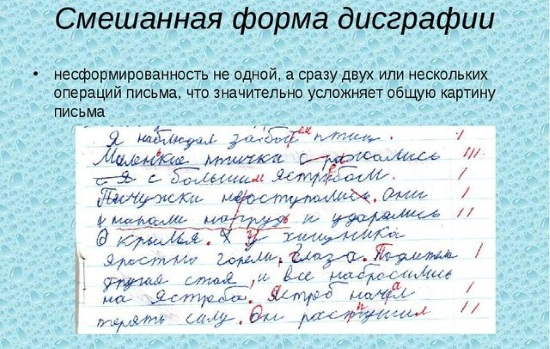 Смешанная форма дисграфии
• несформированность не одной, а сразу двух или нескольких
операций письма, что значительно усложняет общую картину
письма
Я наблюдал за бой птиц.
Маленкие птички с ражались
я с большим ястребом.
Пичужки не оступались. Они
нападали на грудь и ударялись
О крылья. У хищника
яростно горели глаза. Подлетела
другая стая, и все набросились
на ястреба. Ястреб начел
терять силу. Он распушил